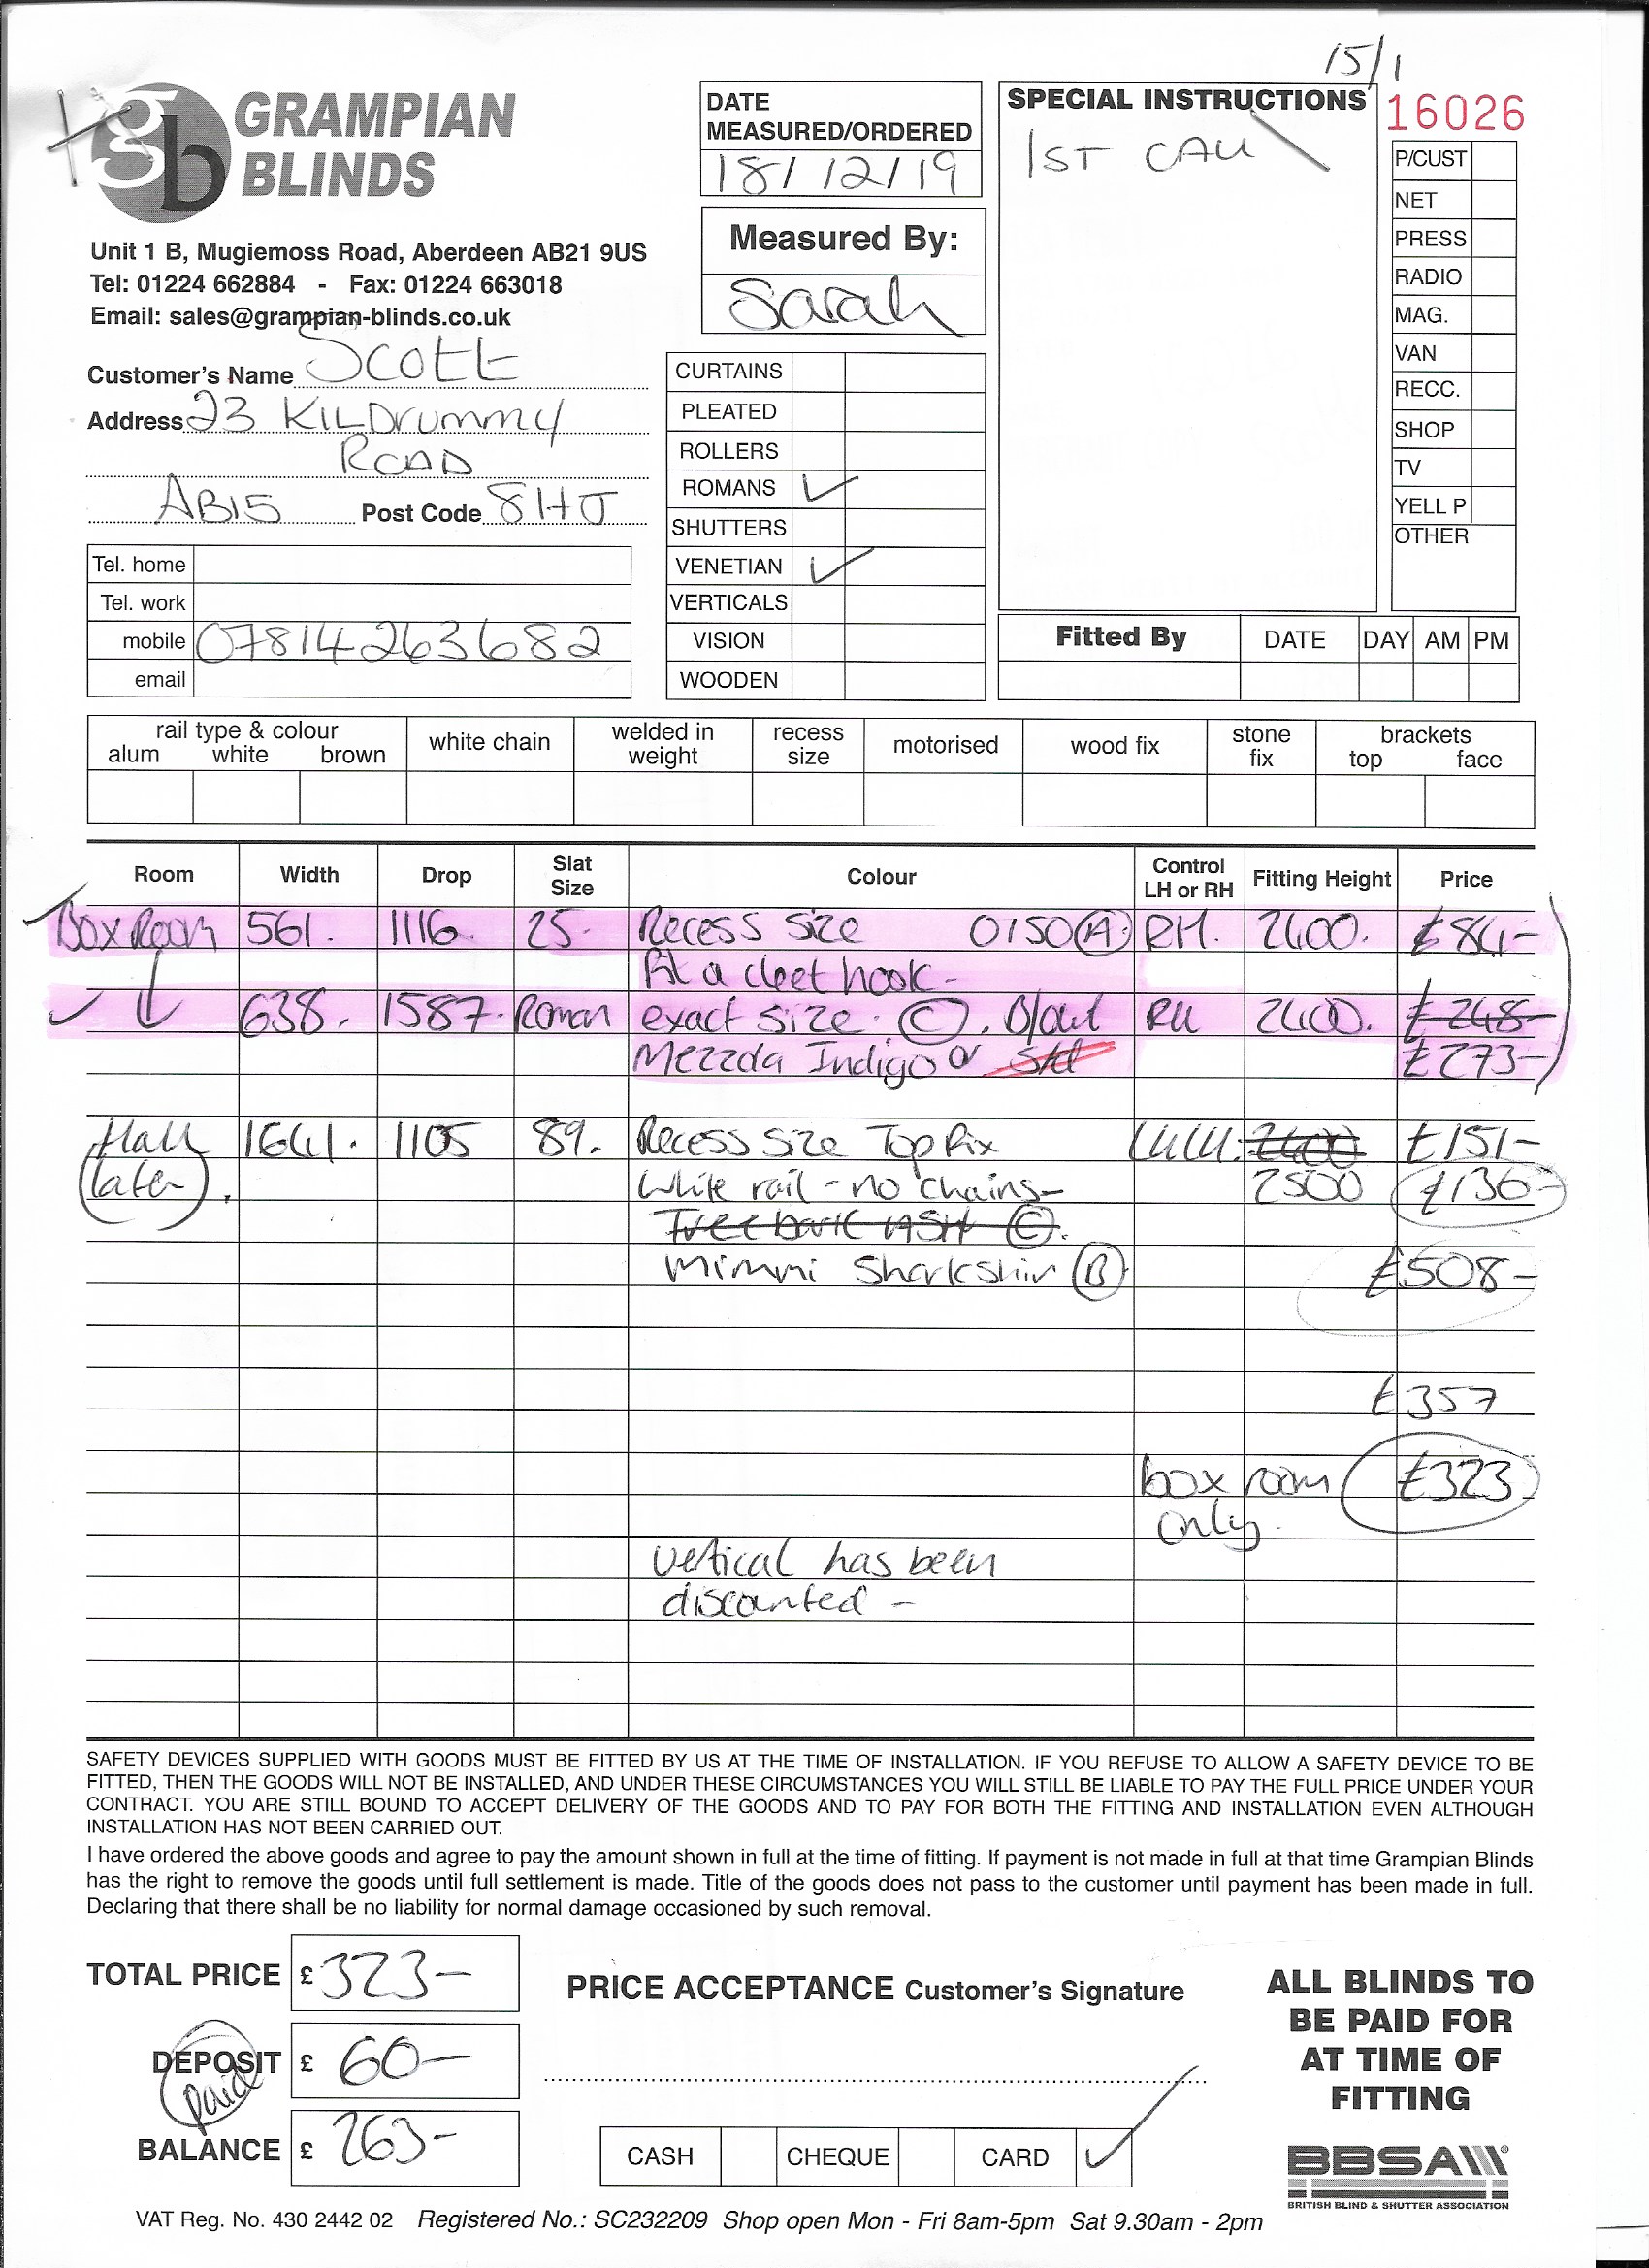 15/1
GRAMPIAN
BLINDS
gb
Unit 1 B, Mugiemoss Road, Aberdeen AB21 9US
Tel: 01224 662884 - Fax: 01224 663018
Email: sales@grampian-blinds.co.uk
Customer's Name Scott
Address 23 KILDrummy
ROAD
AB15 Post Code 8HJ
Tel. home
Tel. work
mobile 07814263682
email
DATE
MEASURED/ORDERED
18/12/19
Measured By:
Sarah
CURTAINS
PLEATED
ROLLERS
ROMANS ✓
SHUTTERS
VENETIAN ✓
VERTICALS
VISION
WOODEN
SPECIAL INSTRUCTIONS
1ST CALL
16026
P/CUST
NET
PRESS
RADIO
MAG.
VAN
RECC.
SHOP
TV
YELL P
OTHER
Fitted By DATE DAY AM PM
rail type & colour
alum white brown
white chain
welded in
weight
recess
size
motorised
wood fix
stone
fix
brackets
top face
Room Width Drop Slat Size Colour Control LH or RH Fitting Height Price
Box Room 561. 1116. 25. Recess Size 0150 (A) RH. 2400. £84-
Fit a cleet hook-
638. 1587. Roman exact size. (C). B/out RH 2400. £248-
Mezzda Indigo £273-
Hall 1641. 1105 89. Recess Size Top fix 2400 £151-
(later). White rail - no chains- 2500 £136-
Treebark ASH (C).
Mimmi Sharkskin (B) £508-
£357
box room £323
only.
vertical has been
discounted -
SAFETY DEVICES SUPPLIED WITH GOODS MUST BE FITTED BY US AT THE TIME OF INSTALLATION. IF YOU REFUSE TO ALLOW A SAFETY DEVICE TO BE
FITTED, THEN THE GOODS WILL NOT BE INSTALLED, AND UNDER THESE CIRCUMSTANCES YOU WILL STILL BE LIABLE TO PAY THE FULL PRICE UNDER YOUR
CONTRACT. YOU ARE STILL BOUND TO ACCEPT DELIVERY OF THE GOODS AND TO PAY FOR BOTH THE FITTING AND INSTALLATION EVEN ALTHOUGH
INSTALLATION HAS NOT BEEN CARRIED OUT.
I have ordered the above goods and agree to pay the amount shown in full at the time of fitting. If payment is not made in full at that time Grampian Blinds
has the right to remove the goods until full settlement is made. Title of the goods does not pass to the customer until payment has been made in full.
Declaring that there shall be no liability for normal damage occasioned by such removal.
TOTAL PRICE £ 323-
DEPOSIT £ 60-
paid
BALANCE £ 263-
PRICE ACCEPTANCE Customer's Signature
CASH CHEQUE CARD ✓
ALL BLINDS TO
BE PAID FOR
AT TIME OF
FITTING
BBSA
BRITISH BLIND & SHUTTER ASSOCIATION
VAT Reg. No. 430 2442 02 Registered No.: SC232209 Shop open Mon - Fri 8am-5pm Sat 9.30am - 2pm